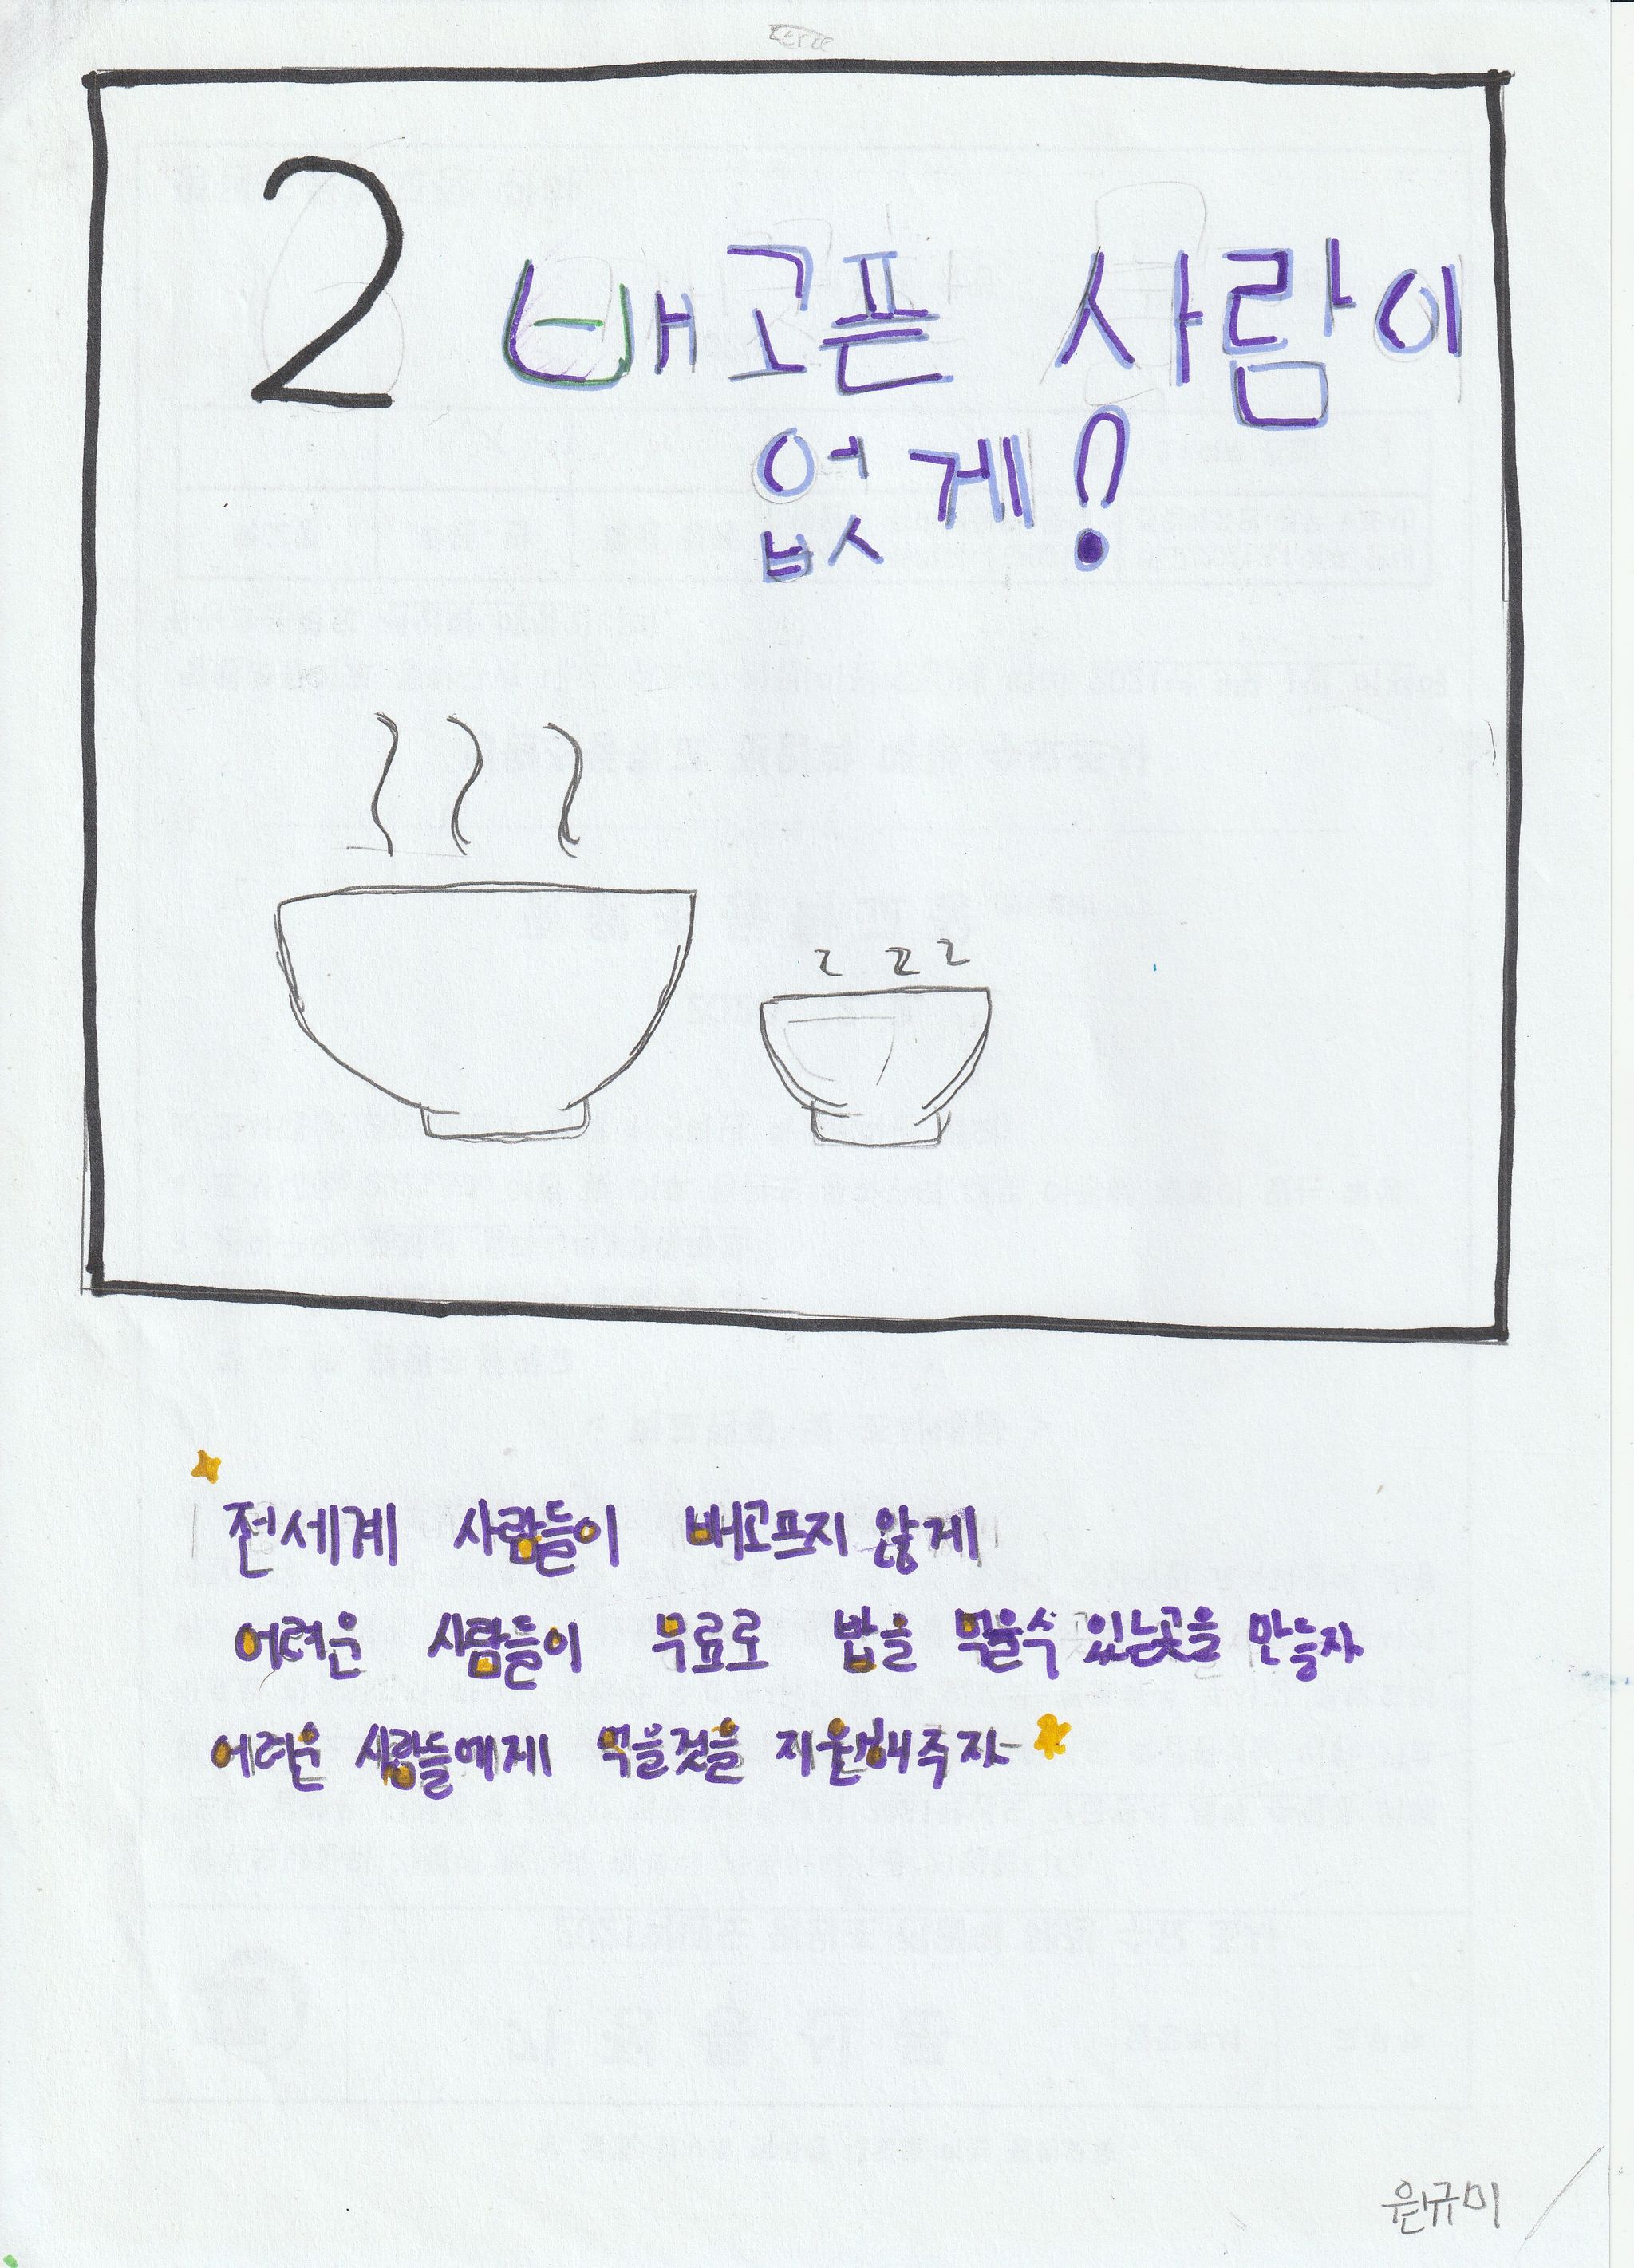 2 배고픈 사람이
없게!
전세계 사람들이 배고프지 않게
어려운 사람들이 무료로 밥을 먹을수 있는곳을 만들자
어려운 사람들에게 먹을것을 지원해주자
원규미